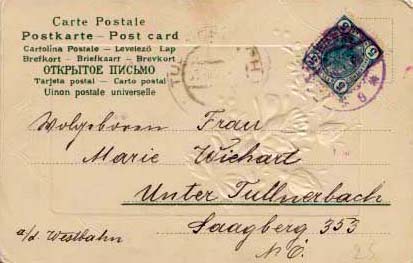 Carte Postale
Postkarte – Post card
Cartolina Postale – Levelező Lap
Brefkort – Briefkaart – Brevkort
ОТКРЫТОЕ ПИСЬМО
Tarjeta postal – Carto postal
Uinon postale universelle
5
5
5
5
6 *
Wolgeboren Frau
Marie Wichart
Unter Tullnerbach
Saagberg 353
a/d. Westbahn
N.Ö.
25